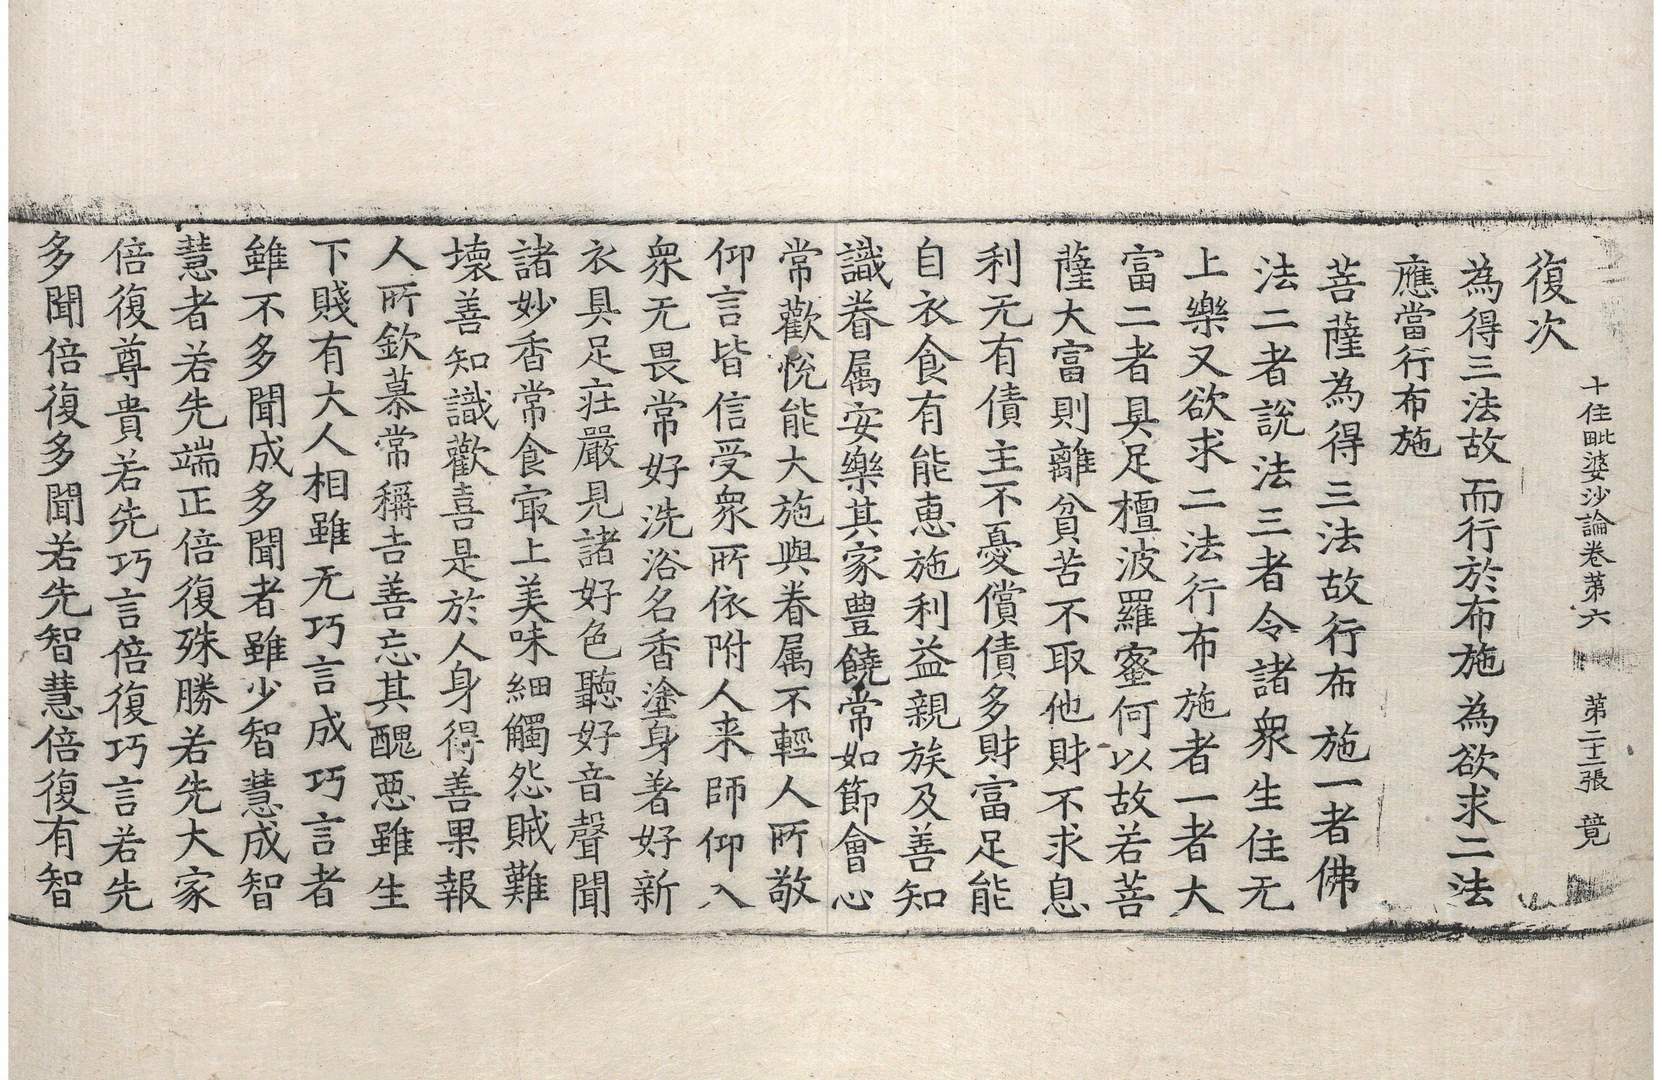 十住毗婆沙論卷第六 第二十二張 竟
復次
為得三法故 而行於布施 為欲求二法
應當行布施
菩薩為得三法故行布施一者佛
法二者說法三者令諸衆生住无
上樂又欲求二法行布施者一者大
富二者具足檀波羅蜜何以故若菩
薩大富則離貧苦不取他財不求息
利无有債主不憂償債多財富足能
自衣食有能惠施利益親族及善知
識眷属安樂其家豊饒常如節會心
常歡悅能大施與眷属不輕人所敬
仰言皆信受衆所依附人来師仰入
衆无畏常好洗浴名香塗身著好新
衣具足莊嚴見諸好色聽好音聲聞
諸妙香常食㝡上美味細觸怨賊難
壞善知識歡喜是於人身得善果報
人所欽慕常稱吉善忘其醜悪雖生
下賤有大人相雖无巧言成巧言者
雖不多聞成多聞者雖少智慧成智
慧者若先端正倍復殊勝若先大家
倍復尊貴若先巧言倍復巧言若先
多聞倍復多聞若先智慧倍復有智